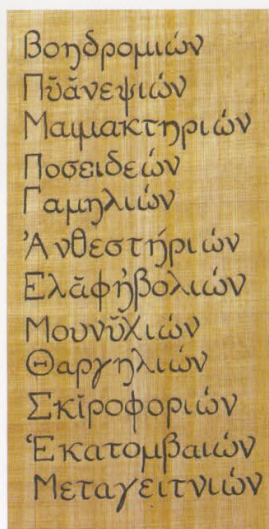 Βοηδρομιών
Πῡᾰνεψιών
Μαιμακτηριών
Ποσειδεών
Γαμηλιών
Ἀνθεστήριών
Ελᾰφἠβολιών
Μουνῠχιών
Θαργηλιών
Σκῐροφοριών
Ἑκατομβαιών
Μεταγειτνιών